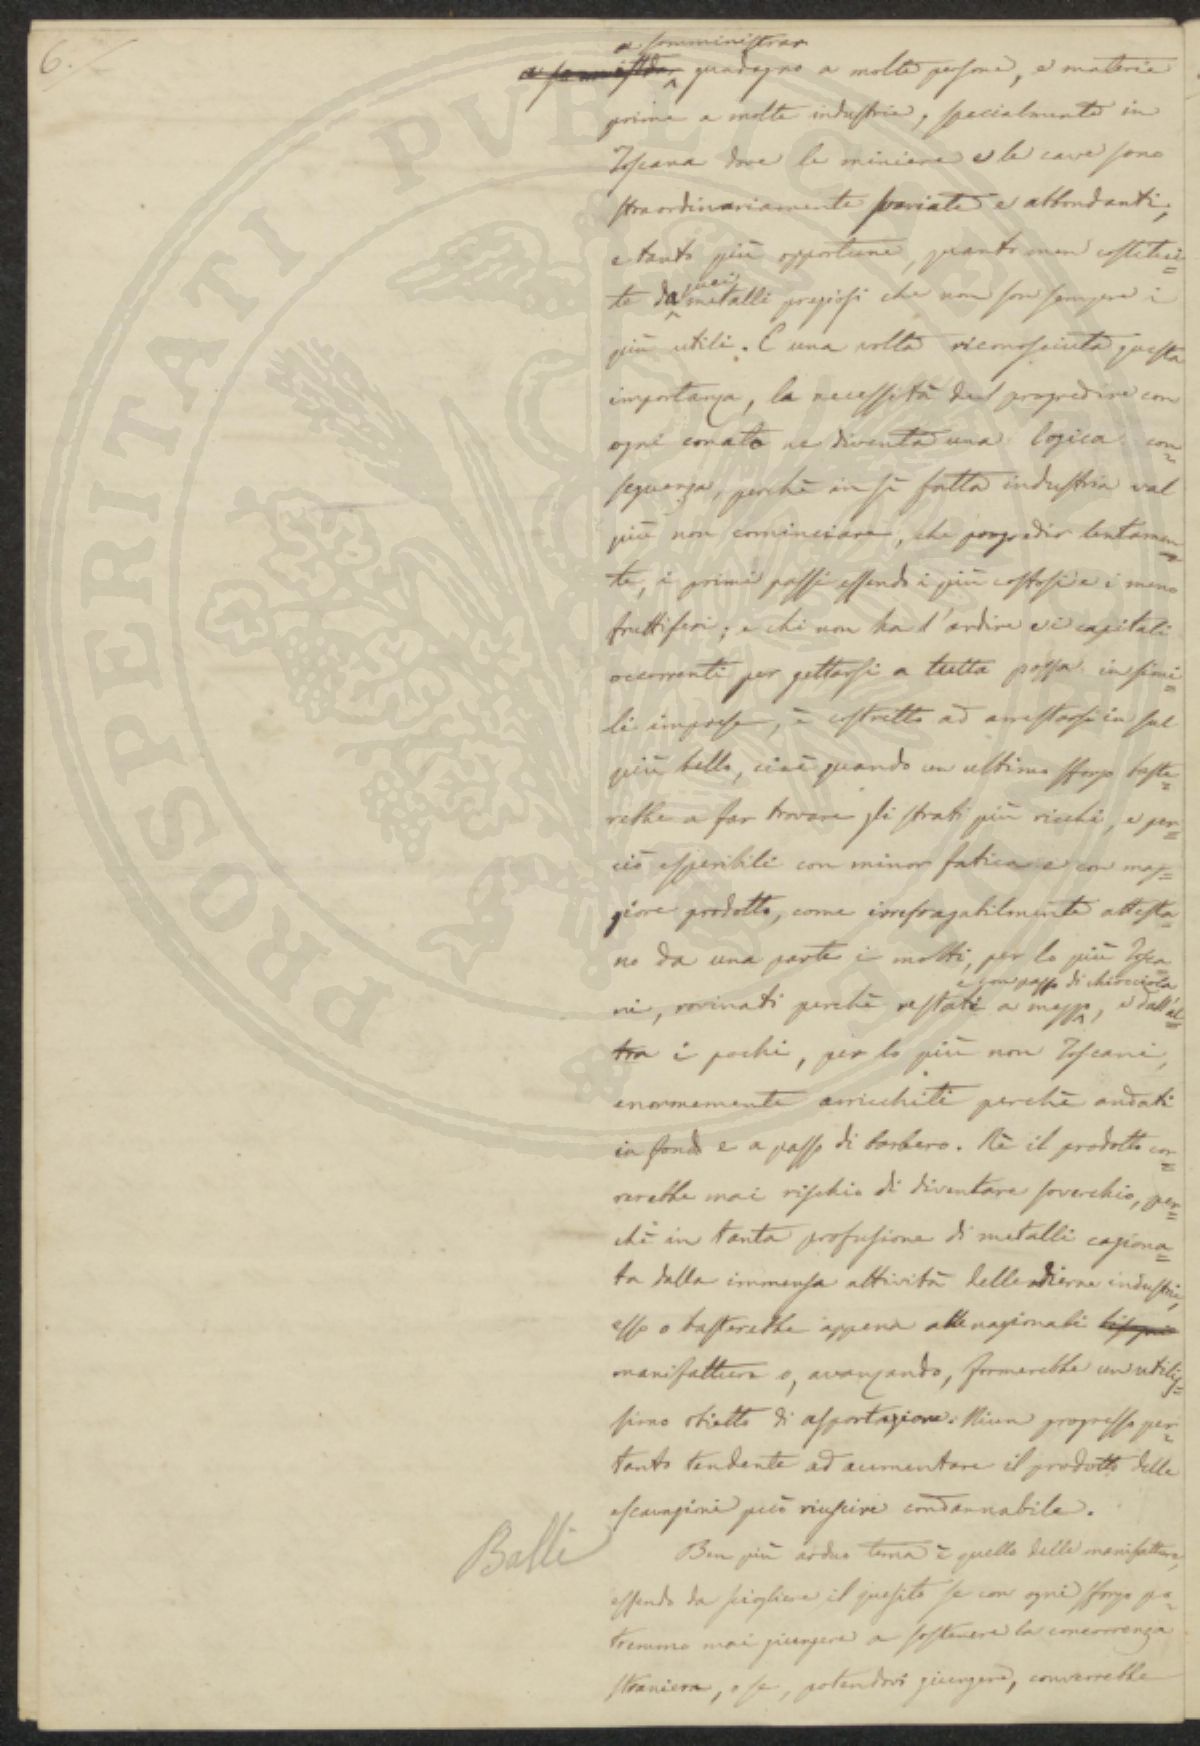 6./
a somministrar
guadagno a molte persone, e materie
prime a molte industrie, specialmente in
Toscana dove le miniere e le cave sono
straordinariamente svariate e abbondanti,
e tanto più opportune, quanto men costitui=
te da quei metalli preziosi che non son sempre i
più utili. E una volta riconosciuta questa
importanza, la necessità del progredire con
ogni conato ne diventa una logica con=
seguenza, perchè in sì fatta industria val
più non cominciare, che progredir lentamen=
te, i primi passi essendo i più costosi e i meno
fruttiferi; e chi non ha l'ardire e i capitali
occorrenti per gettarsi a tutta possa in simi=
li imprese, è costretto ad arrestarsi in sul
più bello, cioè quando un ultimo sforzo baste=
rebbe a far trovare gli strati più ricchi, e per=
ciò esperibili con minor fatica e con mag=
giore prodotto, come irrefragabilmente attesta=
no da una parte i molti, per lo più Tosca=
e con passo di chiocciola
ni, rovinati perchè restati a mezzo, e dall'al=
tra i pochi, per lo più non Toscani,
enormemente arricchiti perchè andati
in fondo e a passo di barbero. Nè il prodotto cor=
rerebbe mai rischio di diventare soverchio, per=
chè in tanta profusione di metalli cagiona=
ta dalla immensa attività delle odierne industrie,
esso o basterebbe appena alle nazionali bisogne
manifatture o, avanzando, formerebbe un utilis=
simo obietto di asportazione. Niun progresso per=
tanto tendente ad aumentare il prodotto delle
escavazioni può riuscire condannabile.
Balli
Ben più arduo tema è quello delle manifatture,
essendo da sciogliere il quesito se con ogni sforzo po=
tremmo mai giungere a sostenere la concorrenza
straniera, o se, potendovi giungere, converrebbe
PROSPERITATI PVBLICAE AVGENDAE